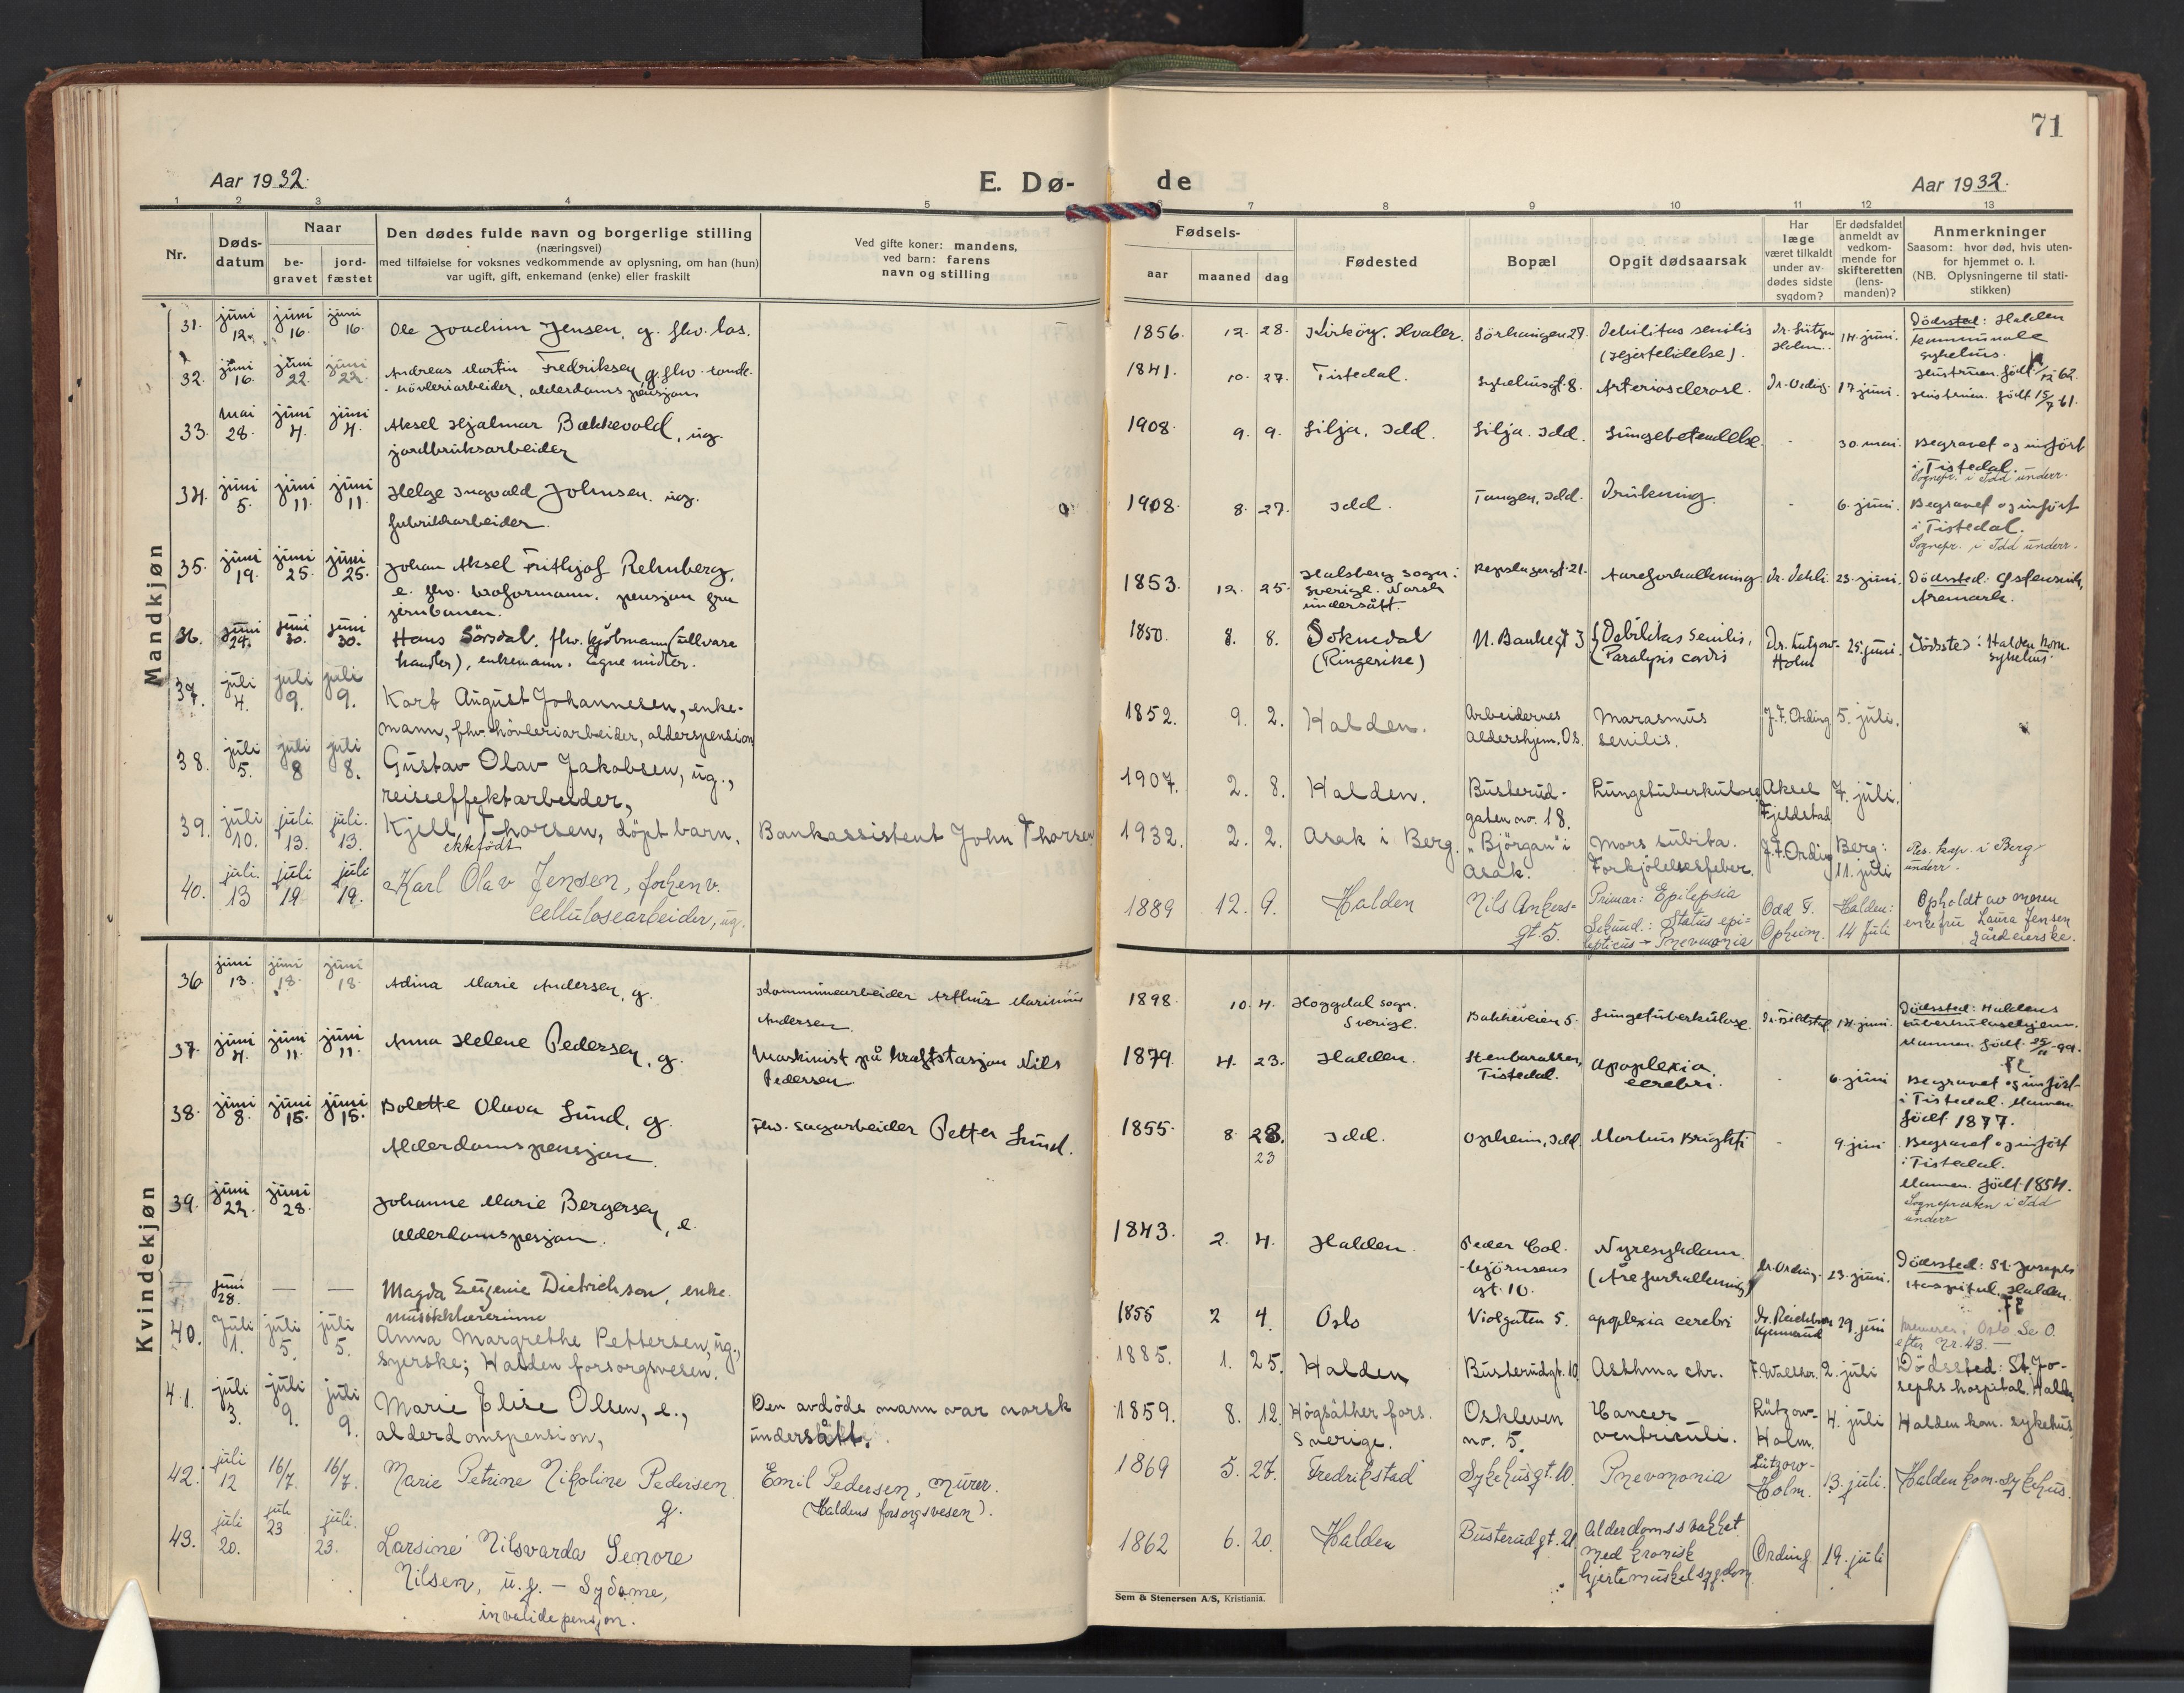 71
Aar 1932.
E. Dø-
de
Aar 1932.
1 2 3 4 5 6 7 8 9 10 11 12 13
Nr.
Døds-
datum
Naar
be-
gravet
jord-
fæstet
Den dødes fulde navn og borgerlige stilling
(næringsvei)
med tilføielse for voksnes vedkommende av oplysning, om han (hun)
var ugift, gift, enkemand (enke) eller fraskilt
Ved gifte koner: mandens,
ved barn: farens
navn og stilling
Fødsels-
aar maaned dag
Fødested
Bopæl
Opgit dødsaarsak
Har
læge
været tilkaldt
under av-
dødes sidste
sygdom?
Er dødsfaldet
anmeldt av
vedkom-
mende for
skifteretten
(lens-
manden)?
Anmerkninger
Saasom: hvor død, hvis uten-
for hjemmet o. l.
(NB. Oplysningerne til stati-
stikken)
Mandkjøn
31. juni 12. juni 16. juni 16. Ole Joachim Jensen, g. fhv. los. 1856. 12. 28. Kirköy, Hvaler. Sörhaugen 27. Debilitas senilis Dr. Lützow 14. juni. Dödssted: Halden
(Hjertelidelse). Holm. kommunale
sykehus.
Hustruen. född 62.
32. juni 16. juni 22. juni 22. Andreas Martin Fredriksen g. fhv. 1841. 10. 27. Tistedal. Sykehusgt. 8. Arteriosclerose. Dr. Ording. 17 juni. Hustruen. född 15/7 61.
- hövleriarbeider, alderdomspensjon.
33. mai 28. juni 4. juni 4. Aksel Hjalmar Bakkevold, ug. 1908. 9. 9. Lilja, Idd. Lilja. Idd. Lungebetendelse. - 30. mai. Begravet og innfört
jordbruksarbeider i Tistedal.
Sognepr. i Idd underr.
34. juni 5. juni 11. juni 11. Helge Ingvald Johnsen. ug. 1908. 8. 27. Idd. Tangen, Idd. Drukning. - 6. juni. Begravet og innfört
fabrikkarbeider. i Tistedal.
Sognepr. i Idd underr.
35. juni 19. juni 25. juni 25. Johan Aksel Frithjof Rehnberg, 1853. 12. 25. Halsberg sogn i 21. Aareforkalkning Dr. Dehli. 23. juni. Dödssted:
e. fhv. banformann. pensjon fra Sverige. Norsk Aremark.
jernbanen. undersått.
36. juni 24. juni 30. juni 30. Hans Sörsdal. fhv. kjöbmann (ullvare 1850. 8. 8. Soknedal N. Bankegt 3 Debilitas senilis, Dr. Lutzow- 25. juni. Dödssted: Halden kom.
handler), enkemann. Egne midler. (Ringerike) Paralysis cordis Holm sykehus.
37. juli 4. juli 9. juli 9. Karl August Johannesen, enke- 1852. 9. 2. Halden. Arbeidernes Marasmus J. F. Ording 5. juli.
mann, fhv. hövleriarbeider, alderspension aldershjem, Os. senilis.
38. juli 5. juli 8 juli 8. Gustav Olav Jakobsen, ug., 1907. 2. 8. Halden. Busterud- Lungetuberkulose Aksel 7. juli.
reiseeffektarbeider, gaten no. 18. Fjeldstad
39. juli 10. juli 13. juli. 13. Kjell Thorsen, döpt barn. Bankassistent John Thorsen 1932. 2. 2. Asak i Berg. "Björgan" i Mors subita. J. F. Ording Berg: Res. kap. i Berg
ektefödt Asak. Forkjölelsesfeber. 11. juli underr.
40. juli. 13 juli 19. juli 19. Karl Olav Jensen, forhenv. 1889 12. 9. Halden Nils Ankers= Primær: Epilepsia Odd F. Halden: Opholdt av moren
cellulosearbeider, ug. gt. 5. Sekund.: Status epi= Opheim. 14 juli enkefru Laura Jensen
lepticus - Pnevmonia gårdeierske.
Kvindekjøn
36 juni 13. juni 18. juni 18. Adina Marie Andersen, g. Kommunearbeider Arthur Marinius 1898. 10. 4. Hoggdal sogn. Bakkeveien 5. Lungetuberkulose. Dr. Fjeldstad 14. juni. Dödssted: Haldens
Andersen. Sverige. tuberkulosehjem.
Mannen. född 25/11-99.
37. juni 4. juni 11. juni 11. Anna Helene Pedersen, g. Maskinist på kraftstasjon Nils 1879. 4. 23. Halden. Stenbarakken, apoplexia - 6. juni Begravet og innfört
Pedersen. Tistedal. cerebri. i Tistedal. Mannen
född 1877.
38. juni 8. juni 15. juni 15. Bolette Olava Lund, g. Fhv. sagarbeider Petter Lund. 1855. 8. 23. Idd. Opheim, Idd. Morbus Brighti - 9. juni Begravet og innfört
Alderdomspensjon. 23 i Tistedal.
Mannen. född 1854.
Sognepresten i Idd
underr
39. juni 22. juni 28. Johanne Marie Bergersen, e. 1843. 2. 4. Halden. Peder Col- Nyresykdom. Dr. Ording. 23. juni. Dödssted: St. Josephs
Alderdomspesjon. -björnsens (Åreforkalkning) Hospital. Halden.
gt. 10.
— juni 28. — — Magda Eugenie Dietrichson, enke. 1855 2 4. Oslo Violgaten 5. apoplexia cerebri Dr. Reichborn 29. juni Kremeres i Oslo Se O.
musikklærerinne Kjennerud efter Nr. 43. —
40. Juli 1. juli 5. juli 5. Anna Margrethe Pettersen, ug., 1885. 1. 25. Halden Busterudgt. 10. Asthma chr. F. Walther. 2. juli Dödssted: St. Jo-
syerske; Halden forsorgsvesen. sephs hospital. Halden
41. juli 3. juli 9. juli 9. Marie Elise Olsen, e., Den avdöde mann var norsk 1859. 8. 12. Högsäther fors. Oskleven Cancer Lützow- 4. juli Halden kom. sykehus
alderdomspension, undersått. Sverige. no. 5. ventriculi. Holm.
42. juli 12 16/7. 16/7. Marie Petrine Nikoline Pedersen Emil Pedersen, murer. 1869 5. 27. Fredrikstad Sykehusgt. 10. Pnevmonia Lützow- 13. juli. Halden kom. sykehus.
g. (Haldens forsorgsvesen). Holm.
43. juli 20. juli 23 juli. 23. Larsine Nilsvarda Lenore 1862 6. 20. Halden Busterudgt. 21 Alderdomssvakhet Ording 19. juli
Nilsen, u. g. - Sydame, med kronisk
invalidepensjon. hjertemuskelsygdom
Sem & Stenersen A/S, Kristiania.